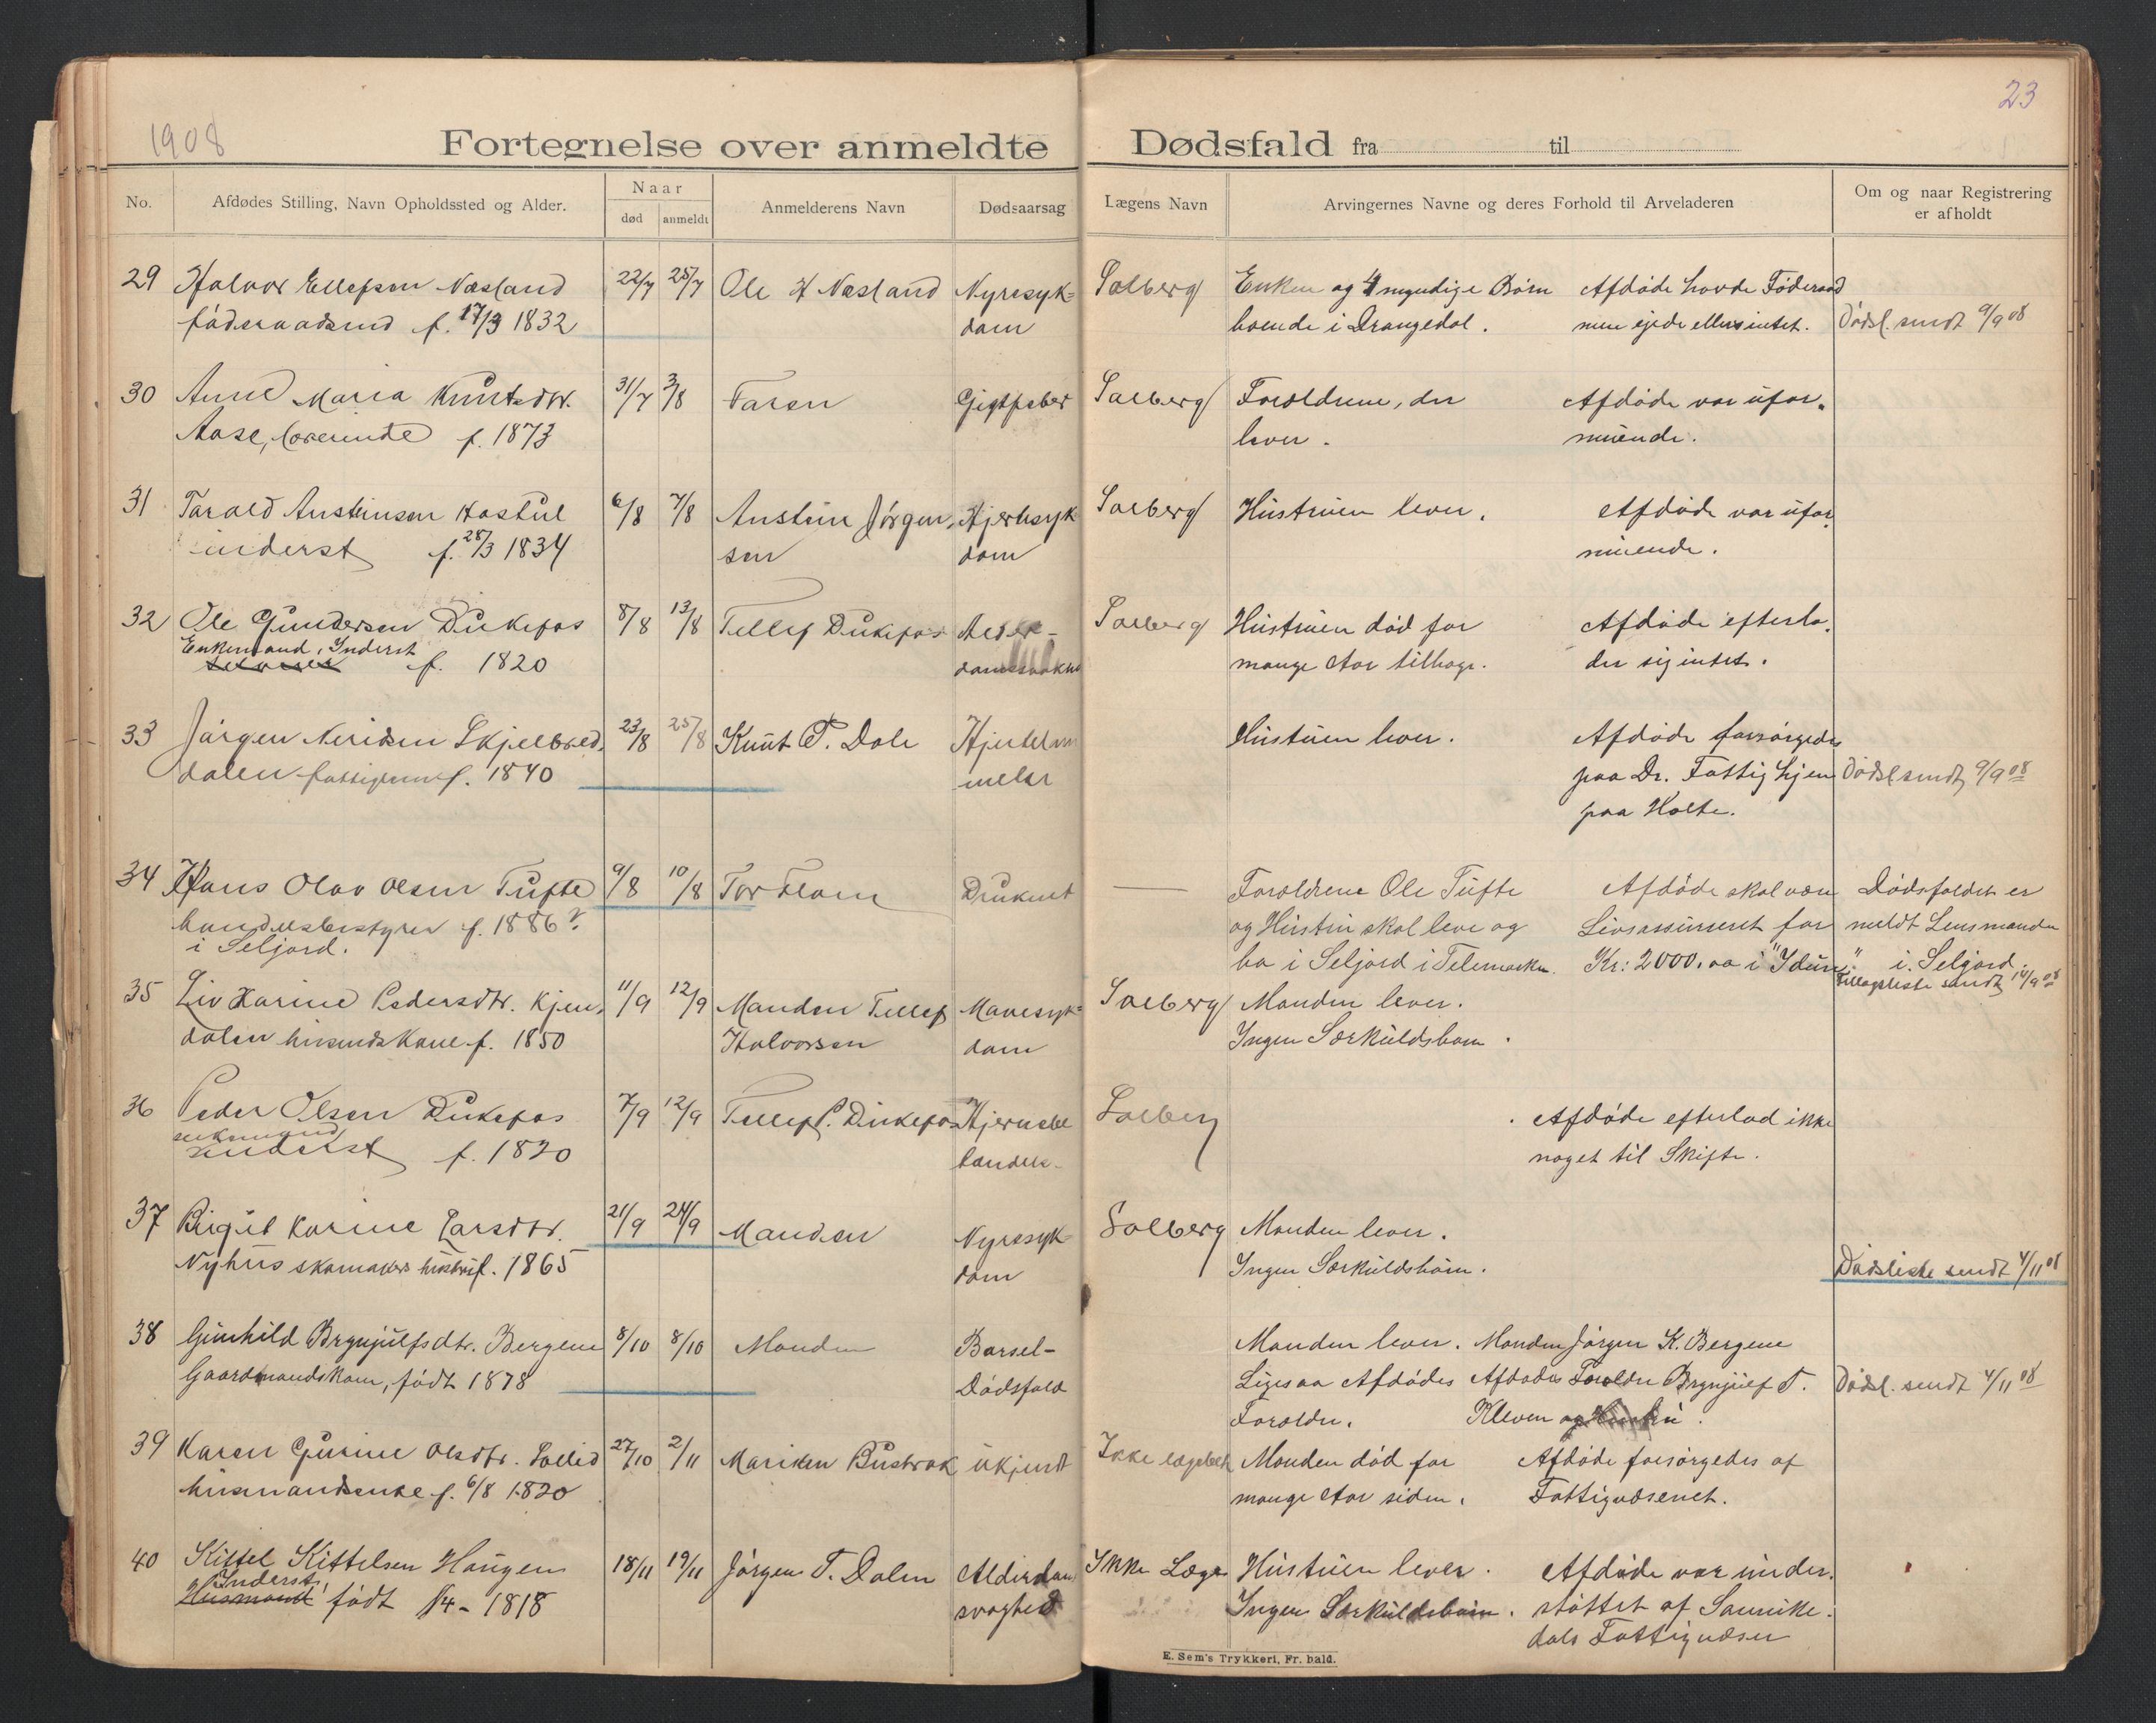 1908
23
Fortegnelse over anmeldte Dødsfald fra til
No.
Afdødes Stilling, Navn Opholdssted og Alder.
Naar
død
anmeldt
Anmelderens Navn
Dødsaarsag
Lægens Navn
Arvingernes Navne og deres Forhold til Arveladeren
Om og naar Registrering
er afholdt
29 Halvor Ellefsen Næsland 22/7 25/7 Ole H Næsland Nyresyk= Solberg Enken og 4 myndige Børn Afdøde havde Føderaad
f. 17/3 1832 dom boende i Drangedal. men ejede ellers intet. Dødsl. sendt 9/9 08
30 Anne Maria Knutsdtr. 31/7 3/8 Faren Gigtfeber Solberg Forældrene, der Afdøde var ufor-
Aase, f. 1873 lever. muende.
31 Tarald Austeinsen Hastul 6/8 7/8 Austein Jørgen- Hjertesyk Solberg Hustruen lever. Afdøde var ufor-
inderst f. 28/3 1834 sen dom muende.
32 Ole Gundersen Dukefos 8/8 13/8 Tellef Dukefos Alder- Solberg Hustruen død for Afdøde efterlo-
Enkemand, Inderst
f. 1820 mange Aar tilbage. der sig intet.
33 Jørgen Nerisen Skjelbred- 23/8 25/8 Knut T. Dale Hustruen lever. Afdøde forsørgedes
dalen f. 1840 paa Dr. Fattighjem Dødsl. sendt 9/9 08
paa Holte.
34 Hans Olav Olsen Tufte 9/8 10/8 Tor Flom Druknet — Forældrene Ole Tufte Afdøde skal være Dødsfaldet er
handelsbestyrer f. 1886? og Hustru skal leve og Livsassureret for meldt Lensmanden
i Seljord. bo i Seljord i Telemarken. Kr: 2000.00 i "Idun" i Seljord.
Tillægsliste sendt 14/9 08
35 Liv Karine Pedersdtr. Kjen- 11/9 12/9 Manden Tellef Mavesyk= Solberg Manden lever.
dalen husmandskone f. 1850 Halvorsen dom Ingen Særkuldsbarn.
36 Peder Olsen Dukefos 7/9 12/9 Tellef P. Dukefos Solberg Afdøde efterlod ikke
enkemand
inderst f. 1820 noget til Skifte.
37 Birgit Karine Larsdtr. 21/9 24/9 Manden Nyresyk= Solberg Manden lever.
Nyhus skomakers hustru f. 1865 dom Ingen Særkuldsbarn. Dødsliste sendt 4/11 08
38 Gunhild Brynjulfsdtr. Bergene 8/10 8/10 Manden Barsel- Manden lever. Manden Jørgen K. Bergene
Gaardmandskone, født 1878 Dødsfald Ligesaa Afdødes Afdødes Forældre Brynjulf T. Dødsl. sendt 4/11 08
Forældre. Kleven og Hustru.
39 Karen Gurine Olsdtr. Lollid 27/10 2/11 Ukjendt Ikke lægebeh Manden død for Afdøde forsørgedes af
husmandsenke f. 6/8 1820 mange Aar siden. Fattigvæsenet.
40 Kittel Kittelsen Haugen 18/11 19/11 Jørgen T. Dalen Alderdoms Ikke Læge Hustruen lever. Afdøde var under-
Inderst,
Husmand født 1/4 - 1818 svaghed Ingen Særkuldsbarn. støttet af Sannike-
dals Fattigvæsen
E. Sem's Trykkeri, Fr. hald.